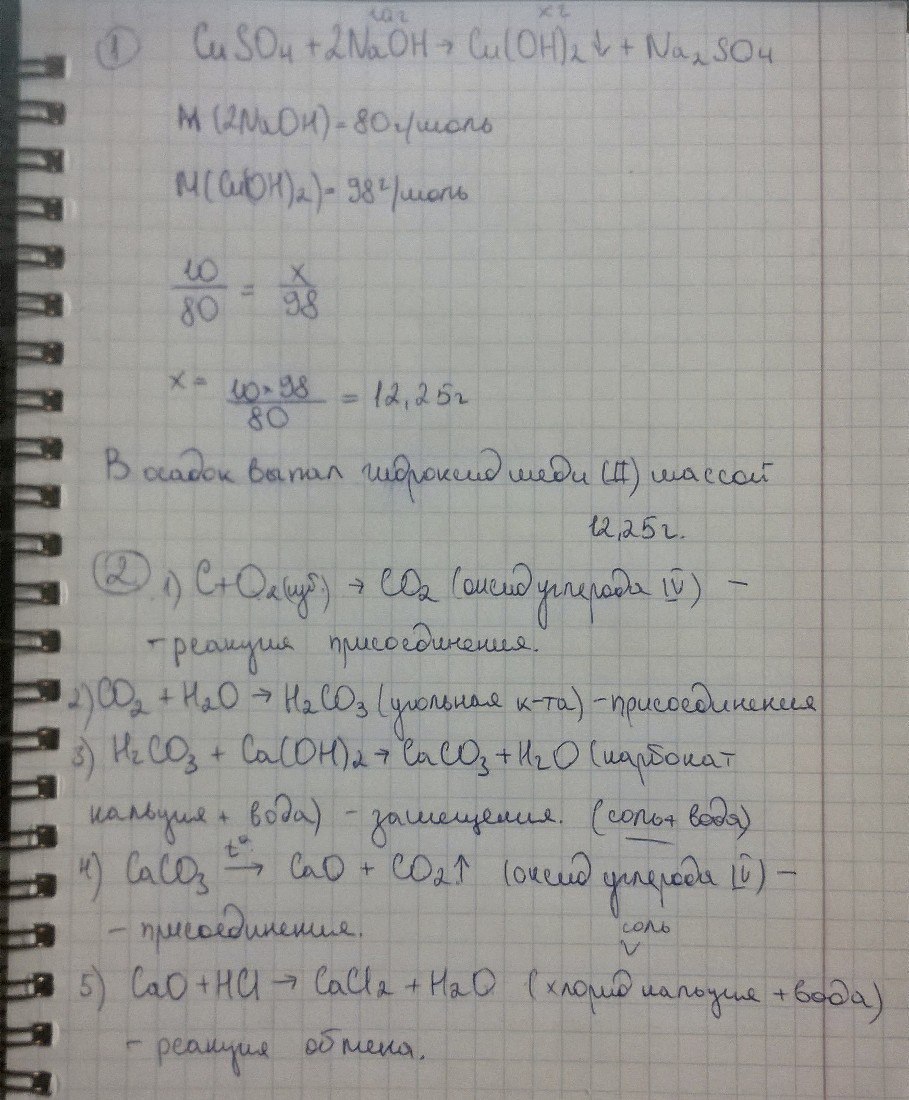 10г хг
① CuSO4 + 2NaOH → Cu(OH)2↓ + Na2SO4
M(2NaOH) = 80г/моль
M(Cu(OH)2) = 98г/моль
10/80 = x/98
x = 10*98/80 = 12,25г
В осадок выпал гидроксид меди (II) массой
12,25г.
② 1) C + O2(изб) → CO2 (оксид углерода IV) –
– реакция присоединения.
2) CO2 + H2O → H2CO3 (угольная к-та) – присоединения
3) H2CO3 + Ca(OH)2 → CaCO3 + H2O (карбонат
кальция + вода) – замещения. (соль + вода)
4) CaCO3 t°→ CaO + CO2↑ (оксид углерода IV) –
– присоединения.
соль
5) CaO + HCl → CaCl2 + H2O (хлорид кальция + вода)
– реакция обмена.